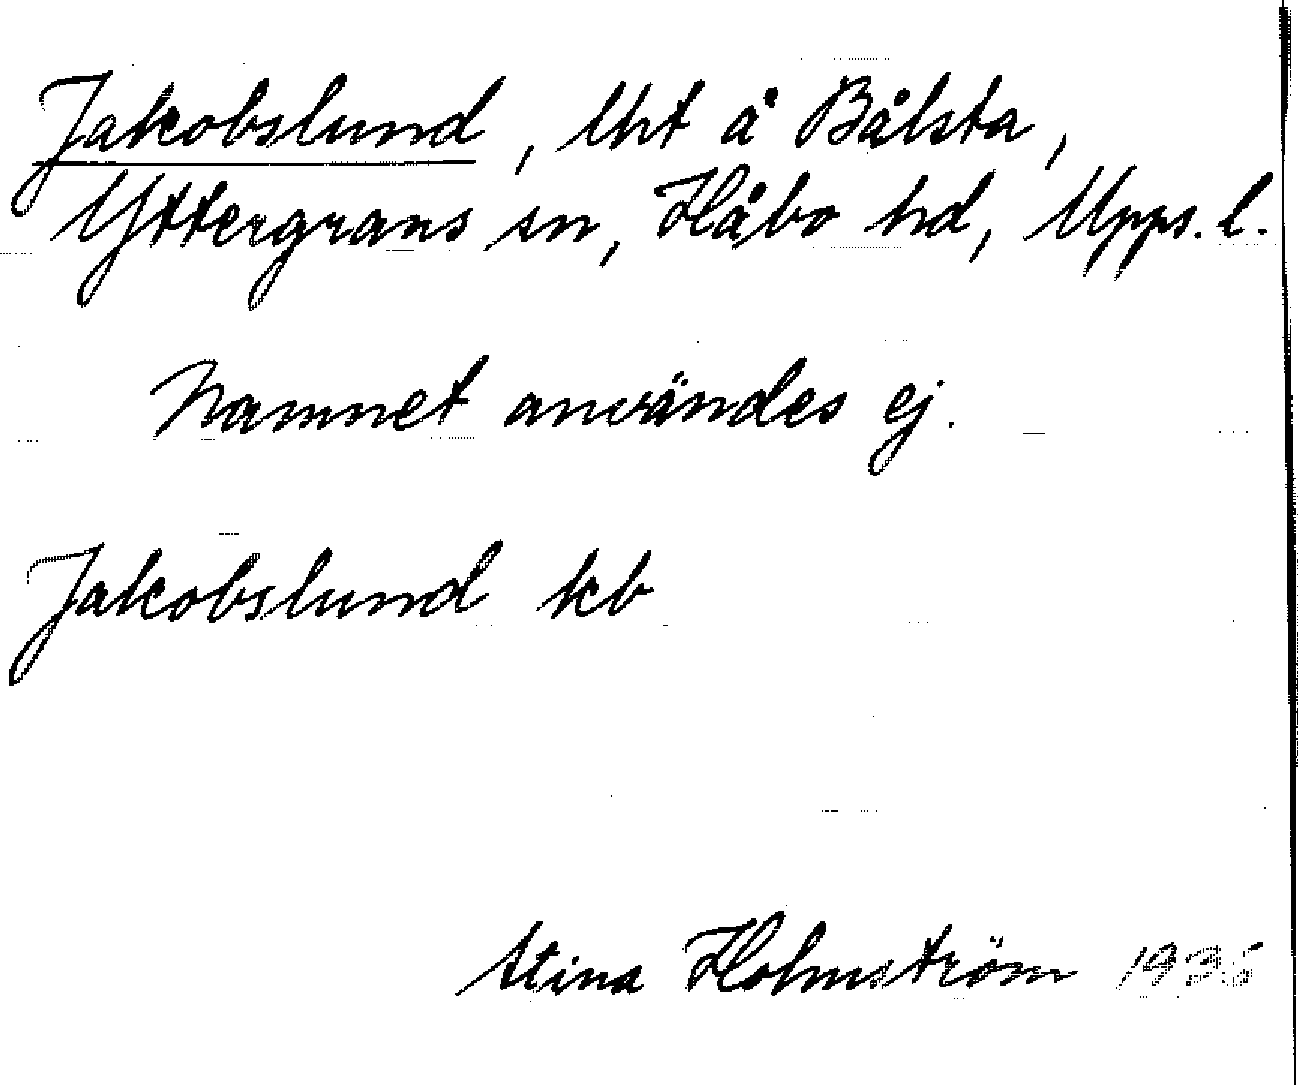 Jakobslund, lht å Bålsta,
Yttergrans sn, Håbo hd, Upps. l.
Namnet användes ej.
Jakobslund kb
Stina Holmström 1935